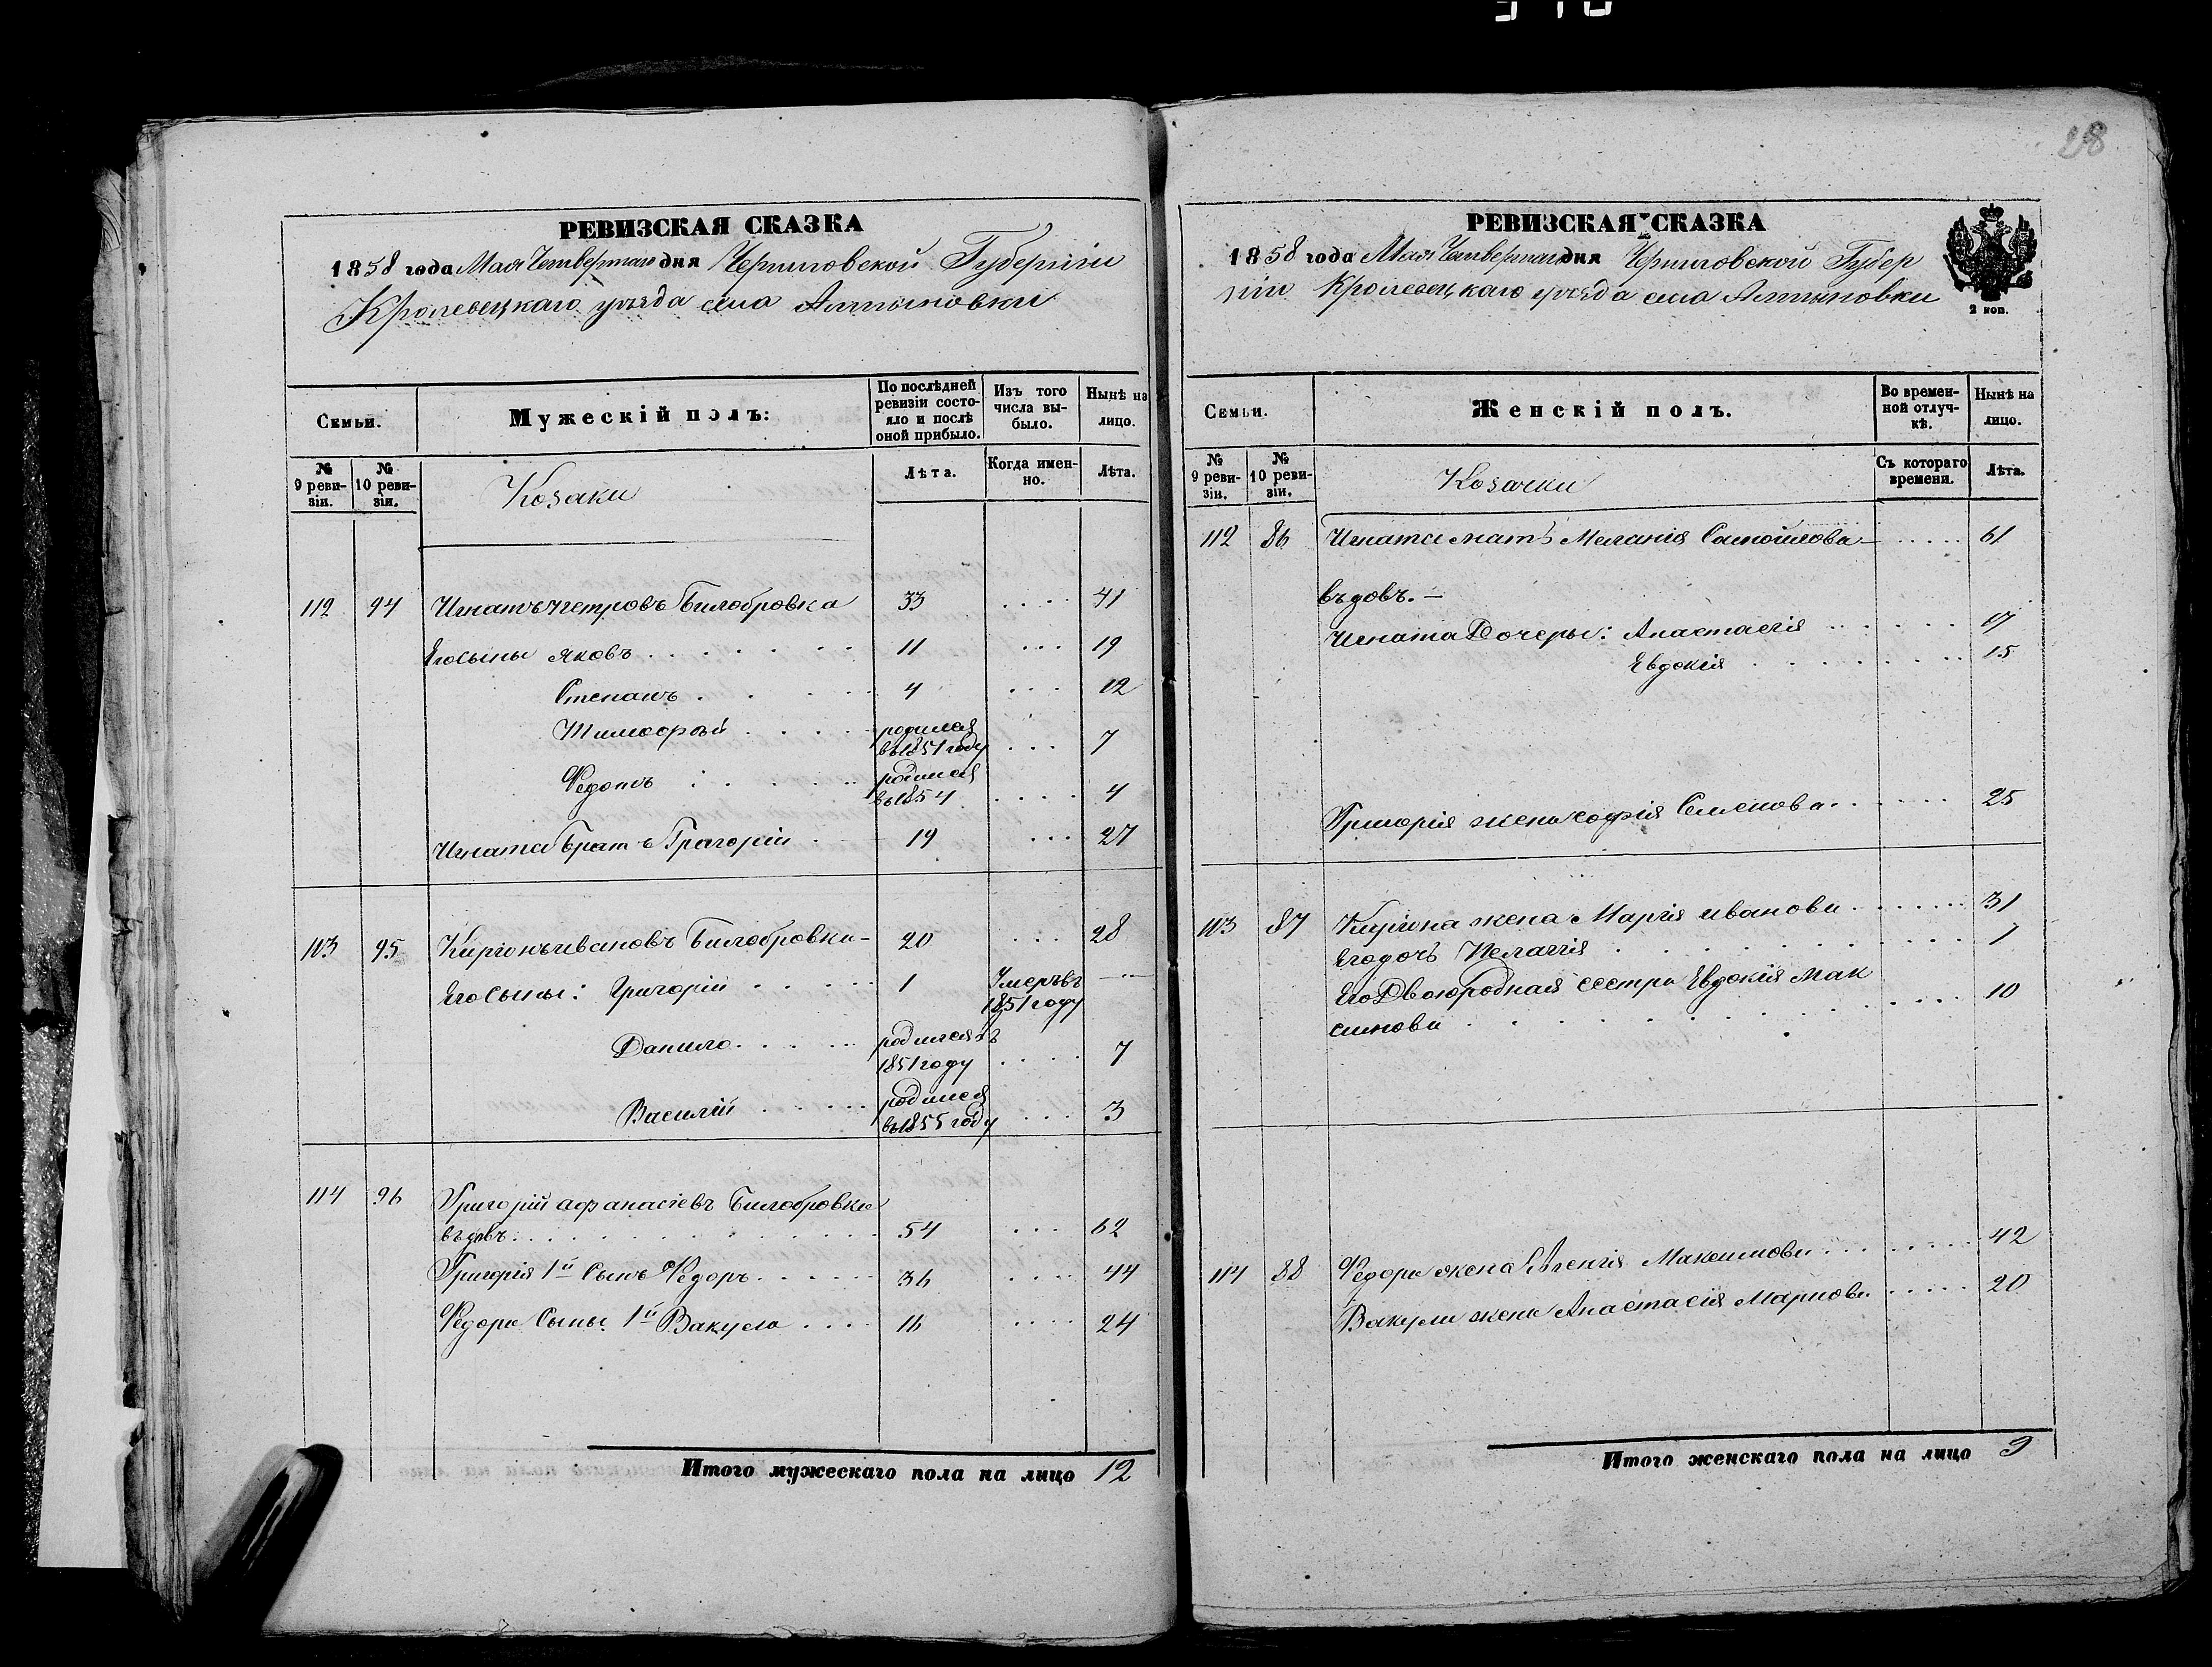 28
РЕВИЗСКАЯ СКАЗКА
1858 года Мая Четвертаго дня Черниговской Губерніи
Кролевецкаго уѣзда села Алтыновки
Семьи.
Мужескій полъ:
По послѣдней ревизіи состояло и послѣ оной прибыло.
Изъ того числа выбыло.
Нынѣ на лицо.
№ 9 ревизіи.
№ 10 ревизіи.
Козаки
Лѣта.
Когда именно.
Лѣта.
112 94 Игнатъ Петровъ Билобровка 33 .... 41
Его сыны Яковъ ....... 11 ... 19
Степанъ .... 4 ... 12
Тимофѣй ..... родился въ 1851 году ... 7
Федотъ ..... родился въ 1854 .... 4
Игната братъ Григорій .. 19 ... 27
113 95 Киріонъ Ивановъ Билобровка - 20 ... 28
Его Сыны: Григорій ..... 1 Умеръ въ 1851 году —
Данило ..... родился въ 1851 году .... 7
Василій ..... родился въ 1855 году ... 3
114 96 Григорій Афанасіевъ Билобровка
вдовъ ............ 54 ... 62
Григорія 1й Сынъ Федоръ ...... 36 .... 44
Федора Сыны 1й Вакула .... 16 .... 24
Итого мужескаго пола на лицо 12
РЕВИЗСКАЯ СКАЗКА
1858 года Мая Четвертаго дня Черниговской Губер
ніи Кролевецкаго уѣзда села Алтыновки
2 коп.
Семьи.
Женскій полъ.
Во временной отлучкѣ.
Нынѣ на лицо.
№ 9 ревизіи.
№ 10 ревизіи.
Козачки
Съ котораго времени.
Лѣта.
112 86 Игната мать Меланія Самойлова — ..... 61
въдовъ. —
Игната Дочеры: Анастасія ...... 17
Евдокія ........ 15
Григорія жена Софія Семенова ...... 25
113 87 Киріона жена Марія Иванова ....... 31
Его дочь Пелагія .......... 1
Его Двоюродная сестра Евдокія Мак
симова ............ 10
114 88 Федора жена Евгенія Максимова ........ 42
Вакулы жена Анастасія Маркова ..... 20
Итого женскаго пола на лицо 9